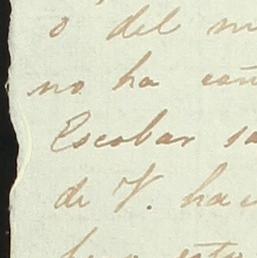 o del m
no ha con
Escobar sa
de V. hac